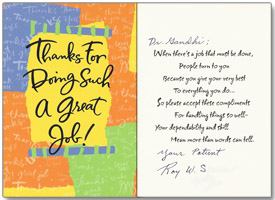 Thanks For
Doing Such
A Great
Job!
Dr. Gandhi;
When there's a job that must be done,
People turn to you
Because you give your very best
To everything you do...
So please accept these compliments
For handling things so well-
Your dependability and skill
Mean more than words can tell.
Your Patient
Roy W. S